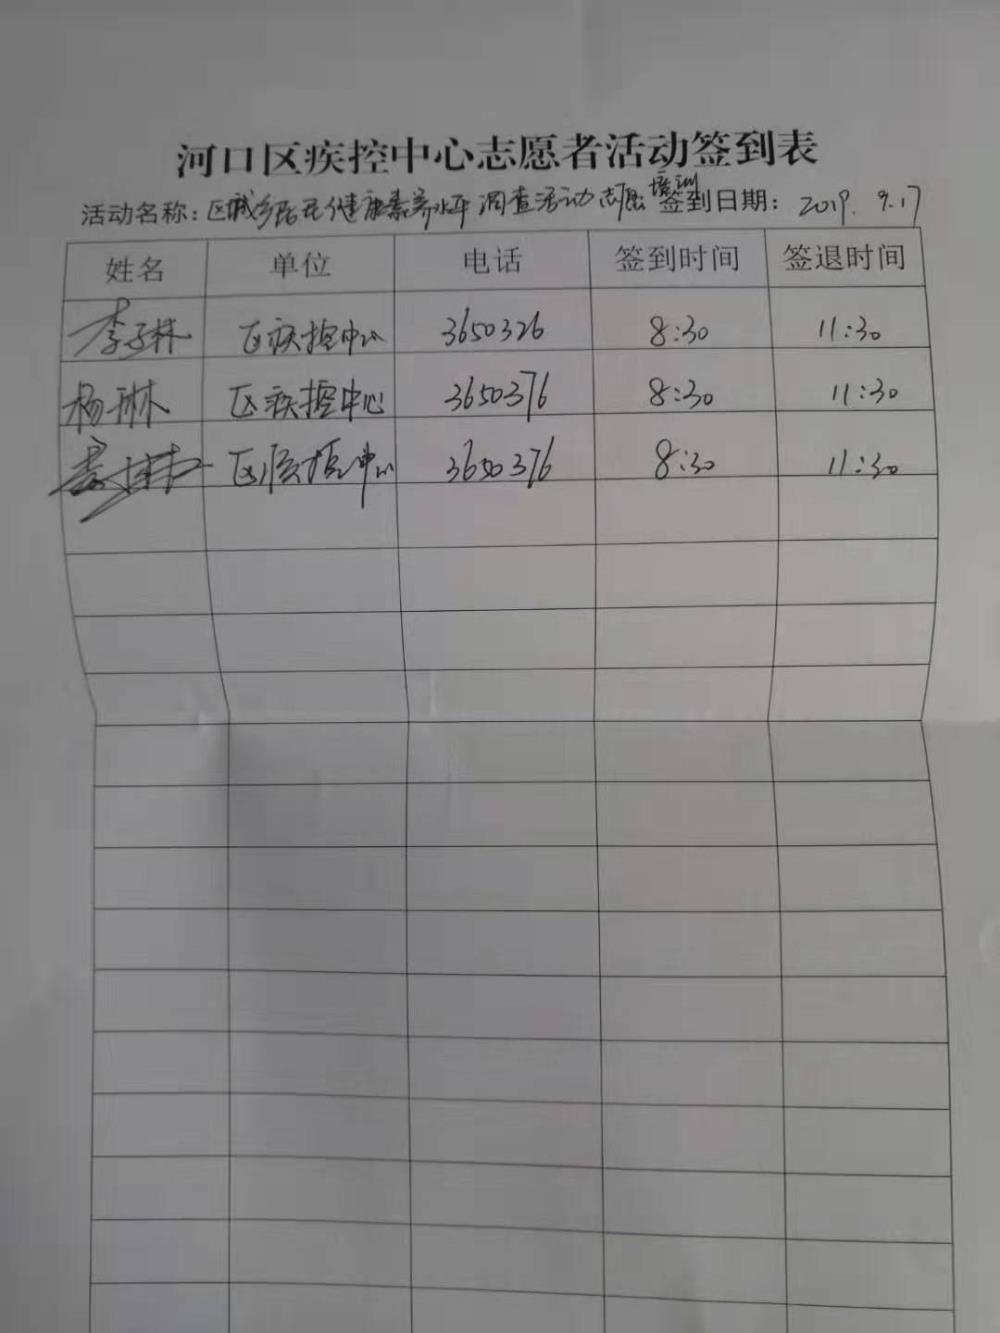 河口区疾控中心志愿者活动签到表
活动名称：区城乡居民健康素养水平调查活动志愿培训 签到日期：2019.9.17
姓名 单位 电话 签到时间 签退时间
李子林 区疾控中心 3650326 8:30 11:30
杨琳 区疾控中心 3650376 8:30 11:30
区疾控中心 3650376 8:30 11:30